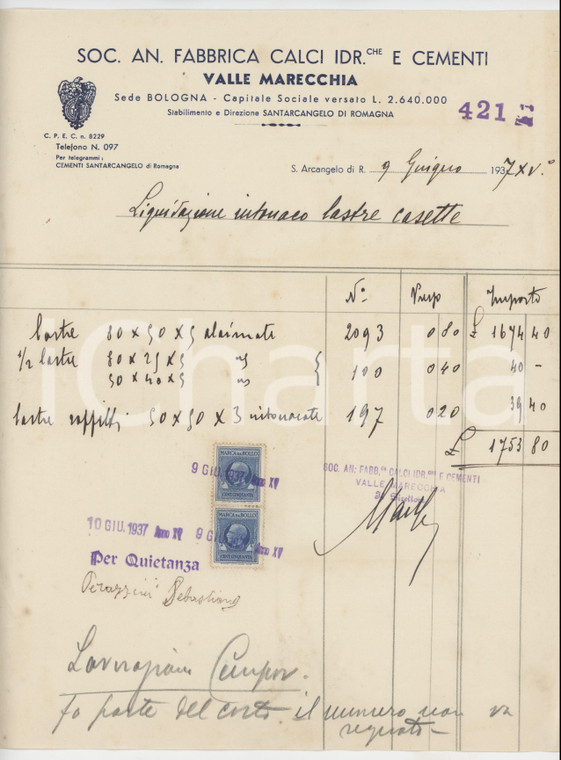 SOC. AN. FABBRICA CALCI IDR.CHE E CEMENTI
VALLE MARECCHIA
Sede BOLOGNA - Capitale Sociale versato L. 2.640.000
Stabilimento e Direzione SANTARCANGELO DI ROMAGNA
421
C. P. E. C. n. 8229
Telefono N. 097
Per telegrammi:
CEMENTI SANTARCANGELO di Romagna
S. Arcangelo di R. 9 Giugno 1937 XV.°
Liquidazione intonaco lastre casette
N° Importo
lastre 80 x 50 x 5 2093 0 80 £ 1674 40
1/2 lastre 80 x 25 x 5 100 0 40 40 -
50 x 40 x 5
lastre 50 x 50 x 3 intonacate 197 0 20 39 40
£ 1753 80
MARCA DA BOLLO
9 GIU. 1937 Anno XV
SOC. AN: FABB.CA CALCI IDR.CHE E CEMENTI
VALLE MARECCHIA
MARCA DA BOLLO
10 GIU. 1937 Anno XV 9 GIU. Anno XV
Per Quietanza
Perazzini Sebastiano
iCharta
Lavorazioni
fa parte del il numero non va